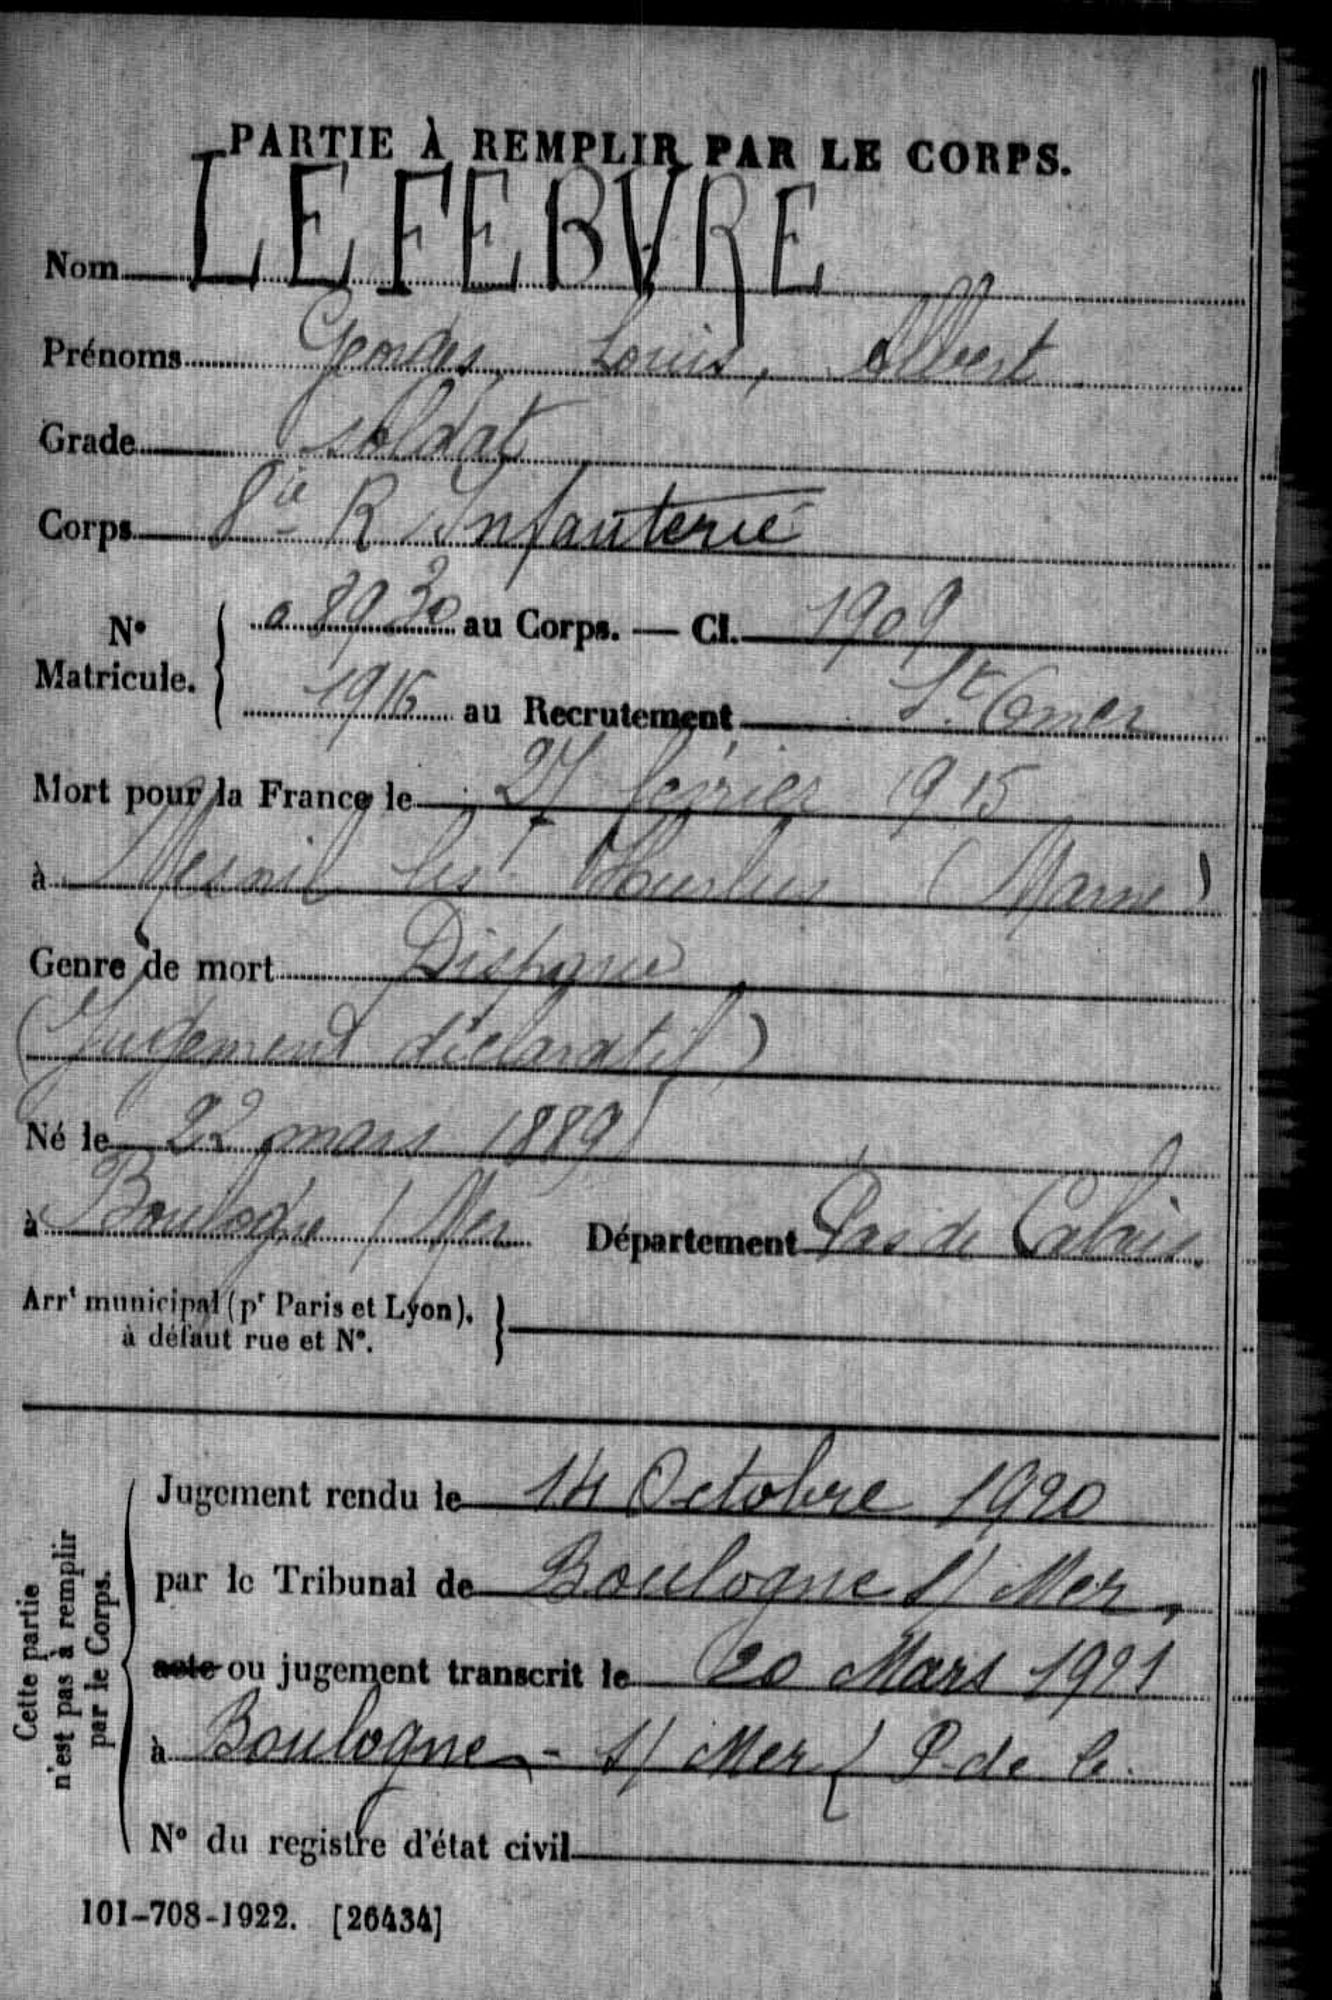 PARTIE À REMPLIR PAR LE CORPS.
Nom LEFEBVRE
Prénoms Georges, Louis, Albert
Grade soldat
Corps 8ie R Infanterie
No Matricule. { 8930 au Corps. — Cl. 1909
1916 au Recrutement St. Omer
Mort pour la France le 27 février 1915
à Mesnil les Hurlus (Marne)
Genre de mort Disparu
(Jugement déclaratif)
Né le 22 mars 1889
à Boulogne / Mer Département Pas de Calais.
Arrt municipal (pr Paris et Lyon), }
à défaut rue et No.
Cette partie
n'est pas à remplir
par le Corps.
Jugement rendu le 14 Octobre 1920
par le Tribunal de Boulogne s/ Mer,
acte ou jugement transcrit le 20 Mars 1921
à Boulogne - s/ Mer ( P. de C.
No du registre d'état civil
101-708-1922. [26434]